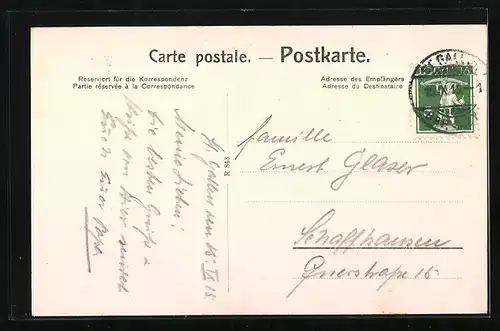 Carte postale. — Postkarte.
Reserviert für die Korrespondenz
Partie réservée à la Correspondance
Adresse des Empfängers
Adresse du Destinataire
ST. GALLEN
HELVETIA
5
R 843
St. Gallen den 18. IX 15
Meine Lieben!
Die besten Grüße &
von hier sendet
Euch Euer Papa
Familie
Ernest Glaser
Schaffhausen
Querstraße 15